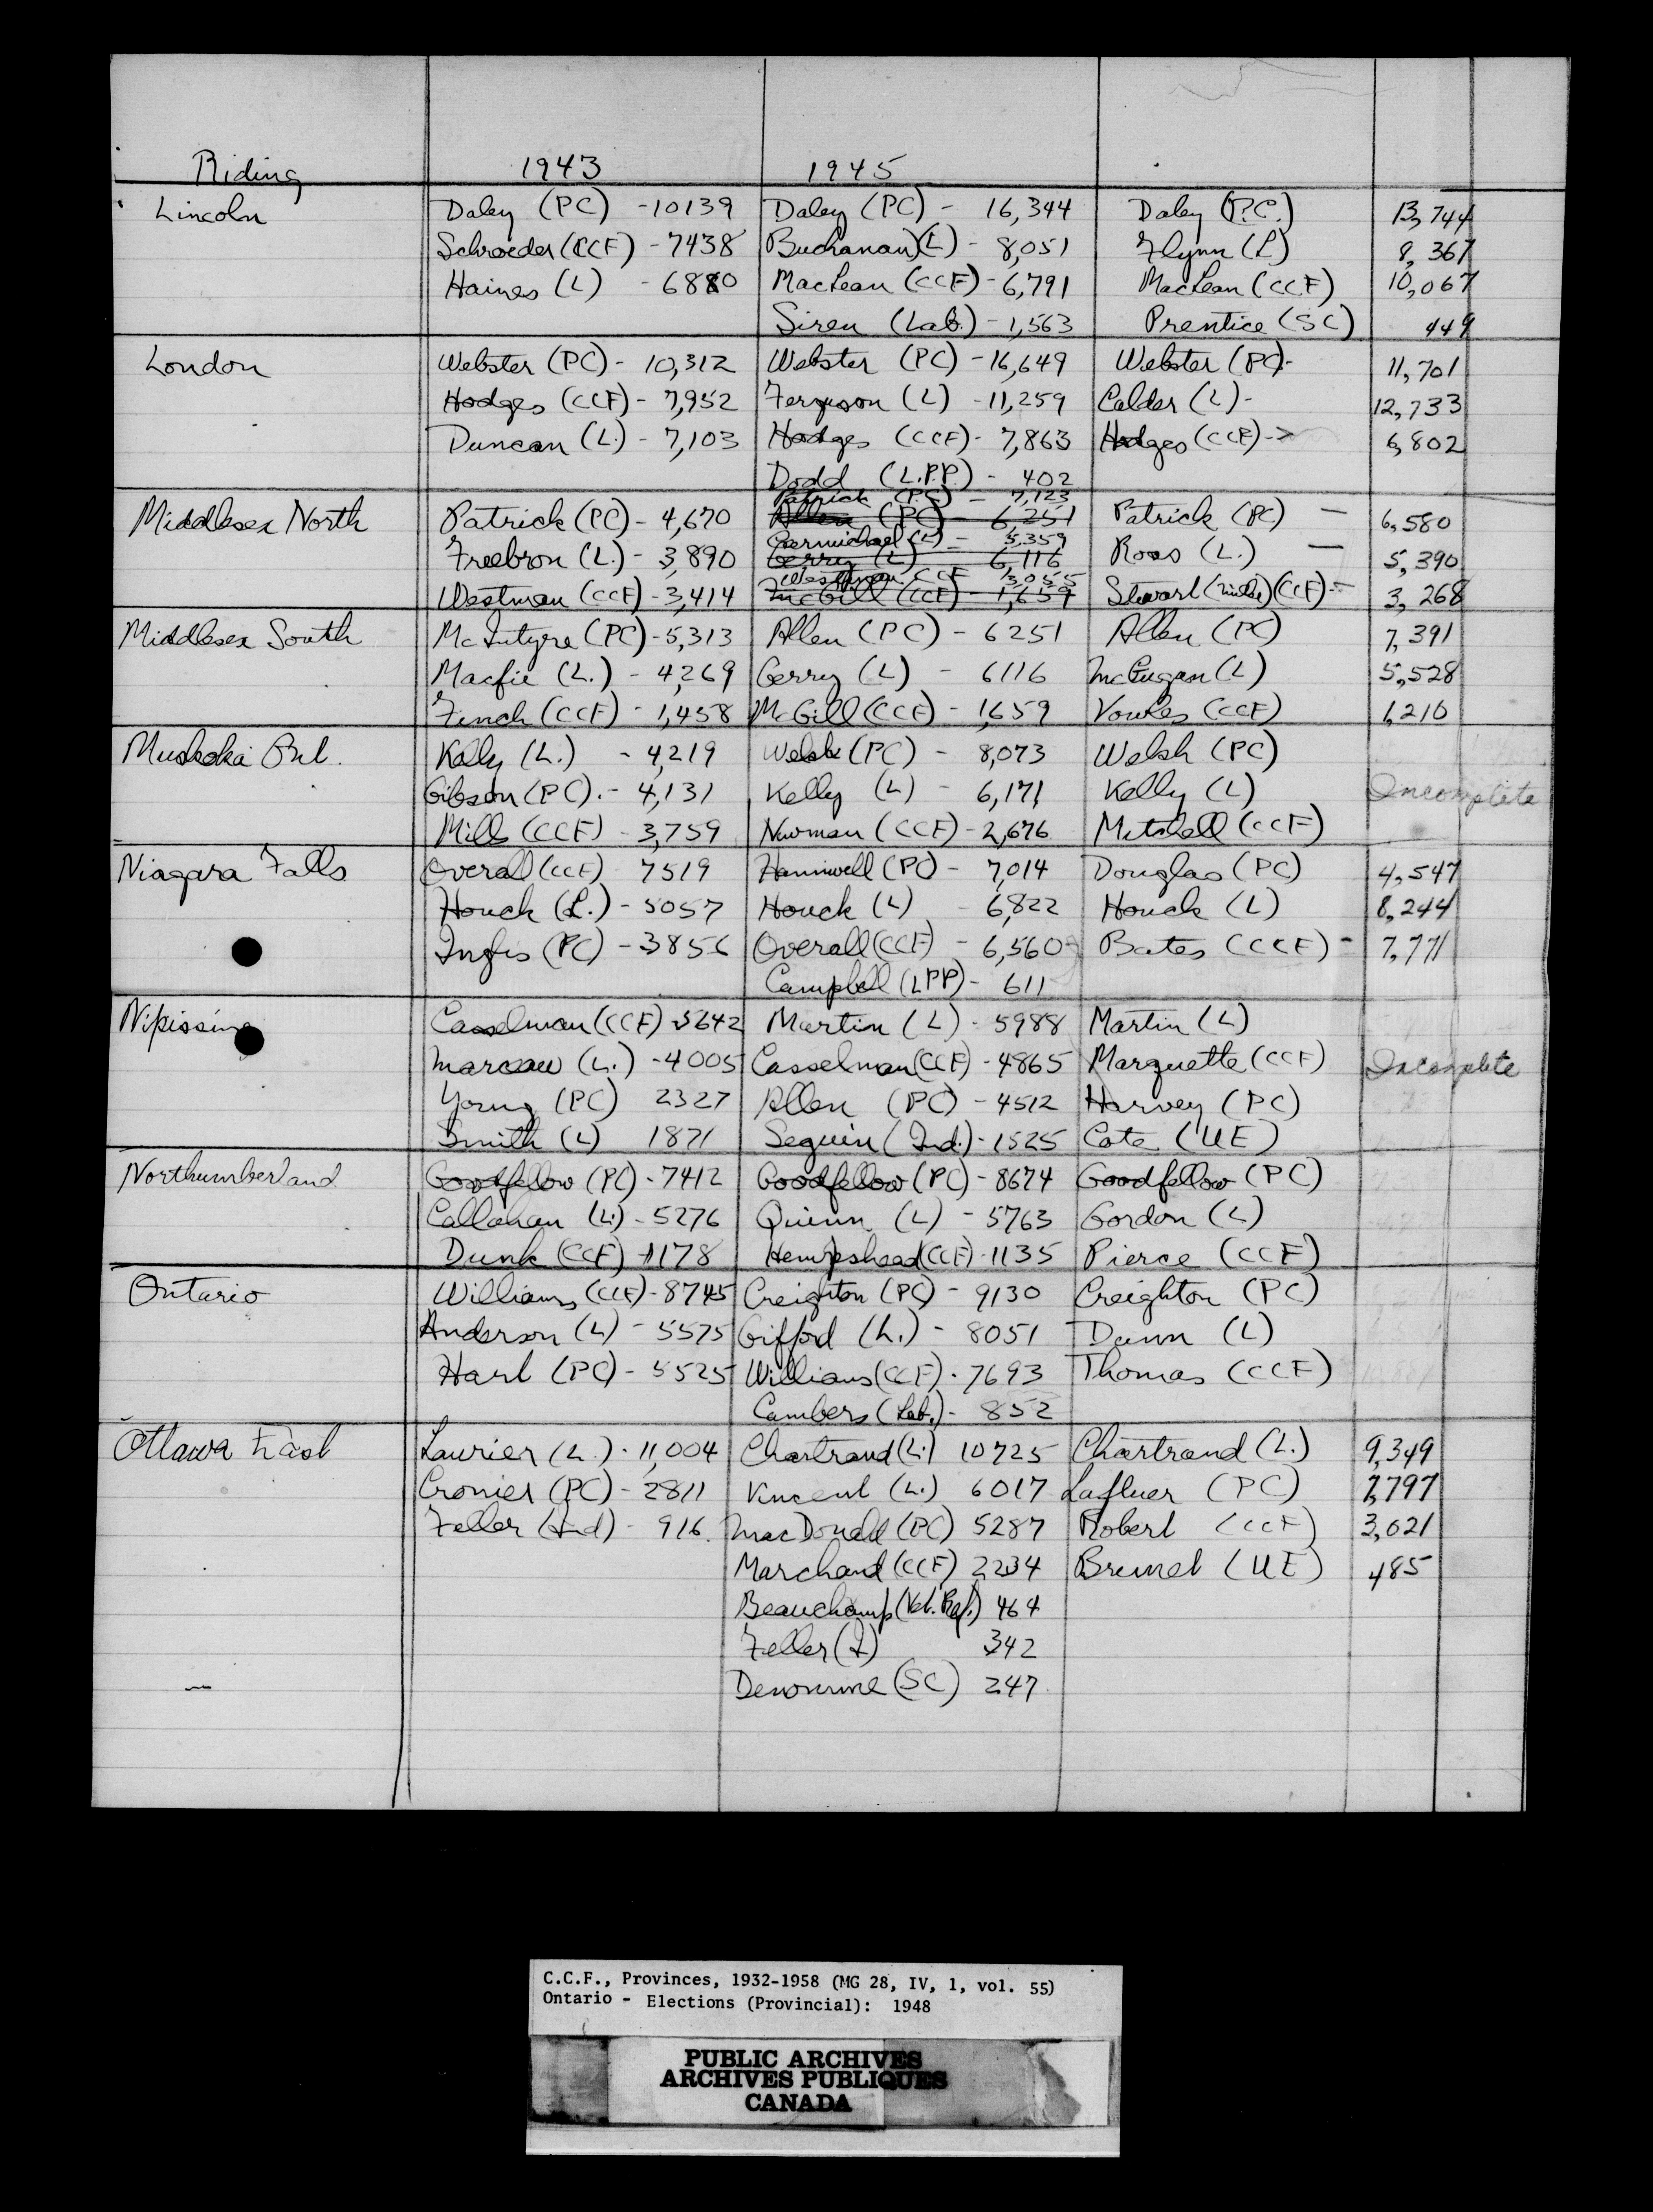 Riding 1943 1945
Lincoln Daley (PC) - 10139 Daley (PC) - 16,344 Daley (P.C.) 13,744
Schroeder (CCF) - 7438 Buchanan (L) - 8,051 Flynn (L) 8,367
Haines (L) - 6880 MacLean (CCF) - 6,791 MacLean (CCF) 10,067
Siren (Lab.) - 1,563 Prentice (SC) 449
London Webster (PC) - 10,312 Webster (PC) - 16,649 Webster (PC) - 11,701
Hodges (CCF) - 7,952 Ferguson (L) - 11,259 Calder (L) - 12,733
Duncan (L.) - 7,103 Hodges (CCF) - 7,863 Hodges (CCF) - 6,802
Dodd (L.P.P.) - 402
Patrick (PC) - 7,123
Middlesex North Patrick (PC) - 4,670 Allen (PC) - 6,251 Patrick (PC) - 6,580
Carmichael (L) - 5,359
Freebron (L.) - 3,890 Gerry (L) 6,116 Ross (L.) - 5,390
Westman CCF 3,055
Westman (CCF) - 3,414 McGill (CCF) - 1,659 Stewart (CCF) - 3,268
Middlesex South McIntyre (PC) - 5,313 Allen (PC) - 6251 Allen (PC) 7,391
Macfie (L.) - 4,269 Gerry (L) - 6116 McGugan (L) 5,528
Finch (CCF) - 1,458 McGill (CCF) - 1659 Voukes (CCF) 1,210
Muskoka Ont. Kelly (L.) - 4,219 Welsh (PC) - 8,073 Welsh (PC)
Gibson (PC). - 4,131 Kelly (L) - 6,171 Kelly (L) Incomplete
Mills (CCF) - 3,759 Newman (CCF) - 2,676 Mitchell (CCF)
Niagara Falls Overall (CCF) 7519 Hanniwell (PC) - 7,014 Douglas (PC) 4,547
Houck (L.) - 5057 Houck (L) - 6,822 Houck (L) 8,244
Inglis (PC) - 3856 Overall (CCF) - 6,560 Bates (CCF) - 7,771
Campbell (LPP) - 611
Nipissing Casselman (CCF) 5642 Martin (L) - 5988 Martin (L)
Marceau (L.) - 4005 Casselman (CCF) - 4865 Marquette (CCF) Incomplete
Young (PC) 2327 Allen (PC) - 4512 Harvey (PC)
Smith (L) 1871 Seguin (Ind.) - 1525 Cote (UE)
Northumberland Goodfellow (PC) - 7412 Goodfellow (PC) - 8674 Goodfellow (PC)
Callahan (L) - 5276 Quinn (L) - 5763 Gordon (L)
Dunk (CCF) - 1178 Hempshead (CCF) - 1135 Pierce (CCF)
Ontario Williams (CCF) - 8745 Creighton (PC) - 9130 Creighton (PC)
Anderson (L) - 5575 Gifford (L.) - 8051 Dunn (L)
Hart (PC) - 5525 Williams (CCF) - 7693 Thomas (CCF)
Cambers (Lab.) - 852
Ottawa East Laurier (L.) - 11,004 Chartrand (L.) 10725 Chartrand (L.) 9,349
Cronier (PC) - 2811 Vincent (L.) 6017 Lafluer (PC) 7,797
Feller (Ind) - 916. MacDonald (PC) 5287 Robert (CCF) 3,021
Marchand (CCF) 2234 Brunet (UE) 485
Beauchamp 464
Feller (I) 342
Denomme (SC) 247
C.C.F., Provinces, 1932-1958 (MG 28, IV, 1, vol. 55)
Ontario - Elections (Provincial): 1948
PUBLIC ARCHIVES
ARCHIVES PUBLIQUES
CANADA